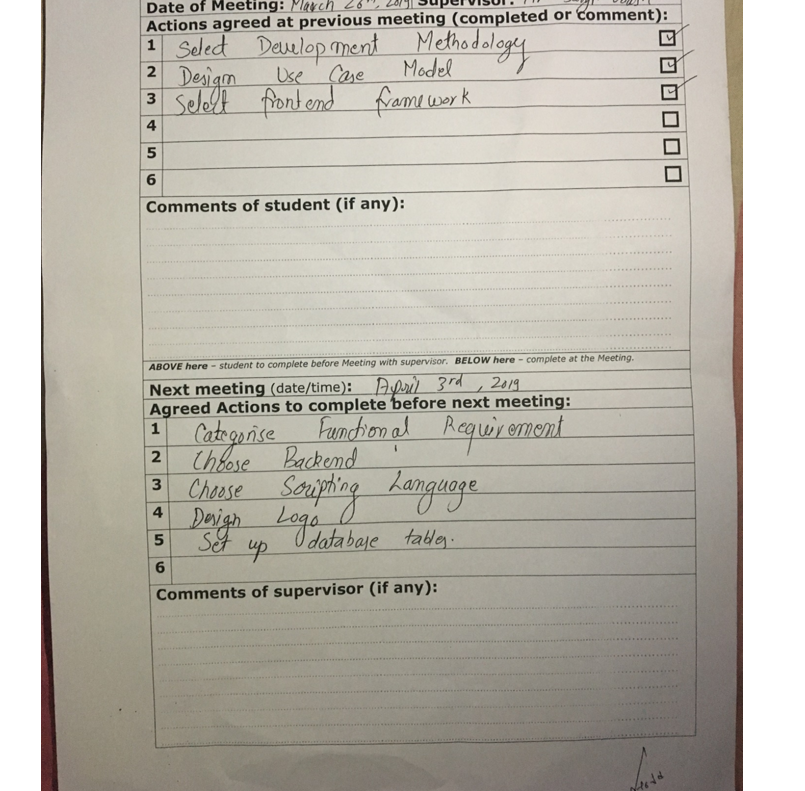 Date of Meeting: March 26th, 2019 Supervisor: Mr
Actions agreed at previous meeting (completed or comment):
1 Select Development Methodology
2 Design Use Case Model
3 Select frontend framework
4
5
6
Comments of student (if any):
ABOVE here – student to complete before Meeting with supervisor. BELOW here – complete at the Meeting.
Next meeting (date/time): April 3rd, 2019
Agreed Actions to complete before next meeting:
1 Categorise Functional Requirement
2 Choose Backend
3 Choose Scripting Language
4 Design Logo
5 Set up database tables.
6
Comments of supervisor (if any):